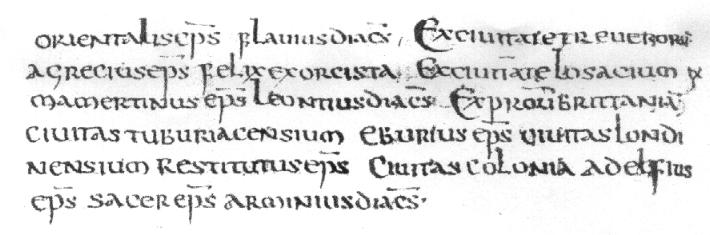 orientalis ep̄s flauius diac̄s, Ex ciuitate treuerorū
agrecius ep̄s felix exorcista Ex ciuitate
mamertinus ep̄s leontius diac̄s Ex prouī brittania
ciuitas tuburiacensium eburius ep̄s ciuitas londi
nensium restitutus ep̄s Ciuitas colonia adelfius
ep̄s sacer ep̄s arminius diac̄s.